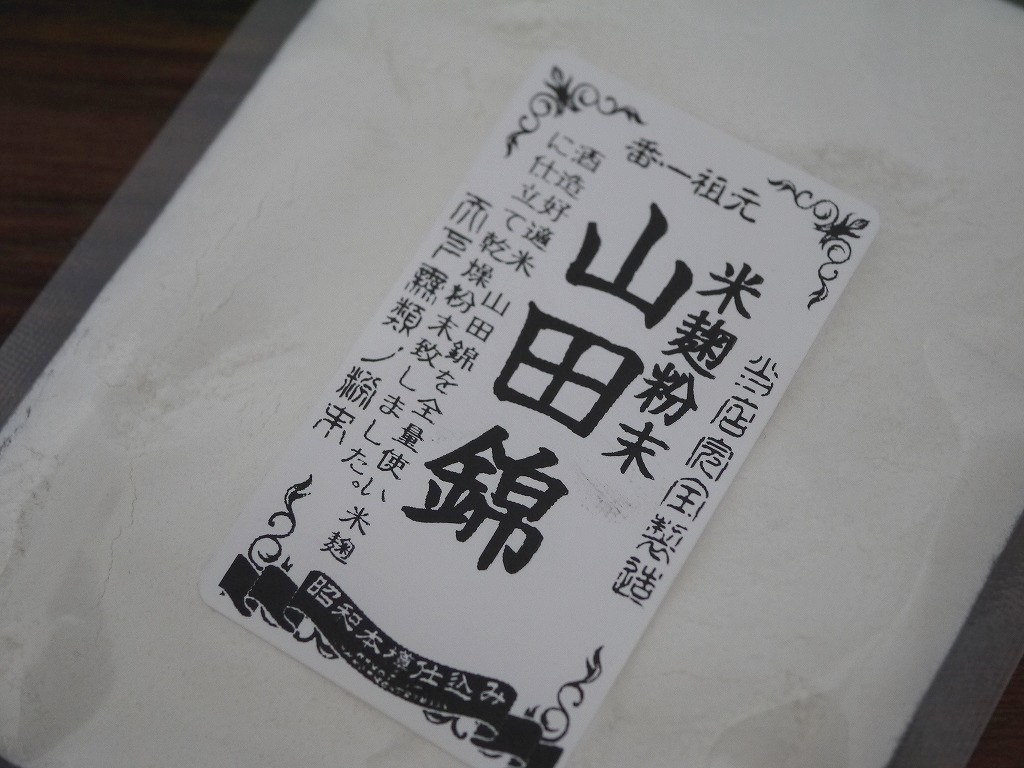 元祖一番
当店完全製造
米麹粉末
山田錦
酒造好適米山田錦を全量使い米麹
に仕立て乾燥粉末致しました。
天下無類ノ粉末
昭和木樽仕込み